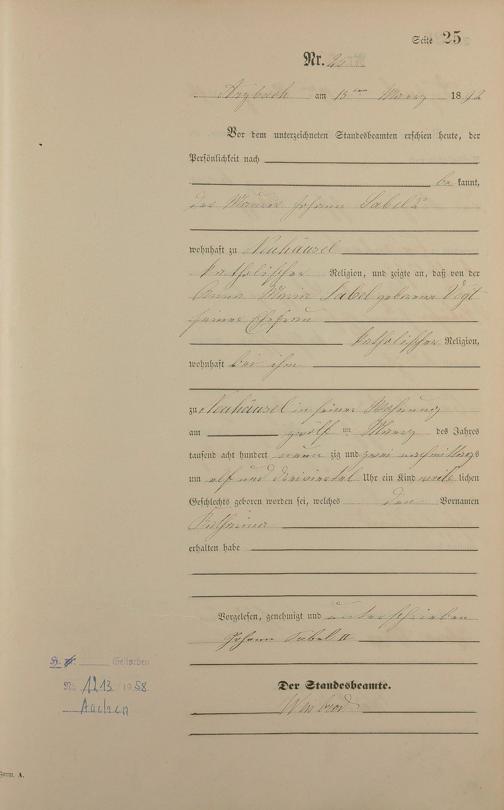 Seite 25
Nr. 25
Arzbach am 13ten Maerz 1892
Vor dem unterzeichneten Standesbeamten erschien heute, der
Persönlichkeit nach
be kannt,
der Maurer Johann Sabel 2r
wohnhaft zu Neuhäusel
katholischer Religion, und zeigte an, daß von der
Anna Maria Sabel geborene Vogt
seiner Ehefrau
katholischer Religion,
wohnhaft bei ihm
zu Neuhäusel in seiner Wohnung
am zwölf ten Maerz des Jahres
tausend acht hundert neun zig und zwei nachmittags
um elf und dreiviertel Uhr ein Kind weib lichen
Geschlechts geboren worden sei, welches den Vornamen
Katharina
erhalten habe
Vorgelesen, genehmigt und unterschrieben
Johann Sabel II
Der Standesbeamte.
Gestorben
Nr. 1213/1958
Aachen
Form. A.